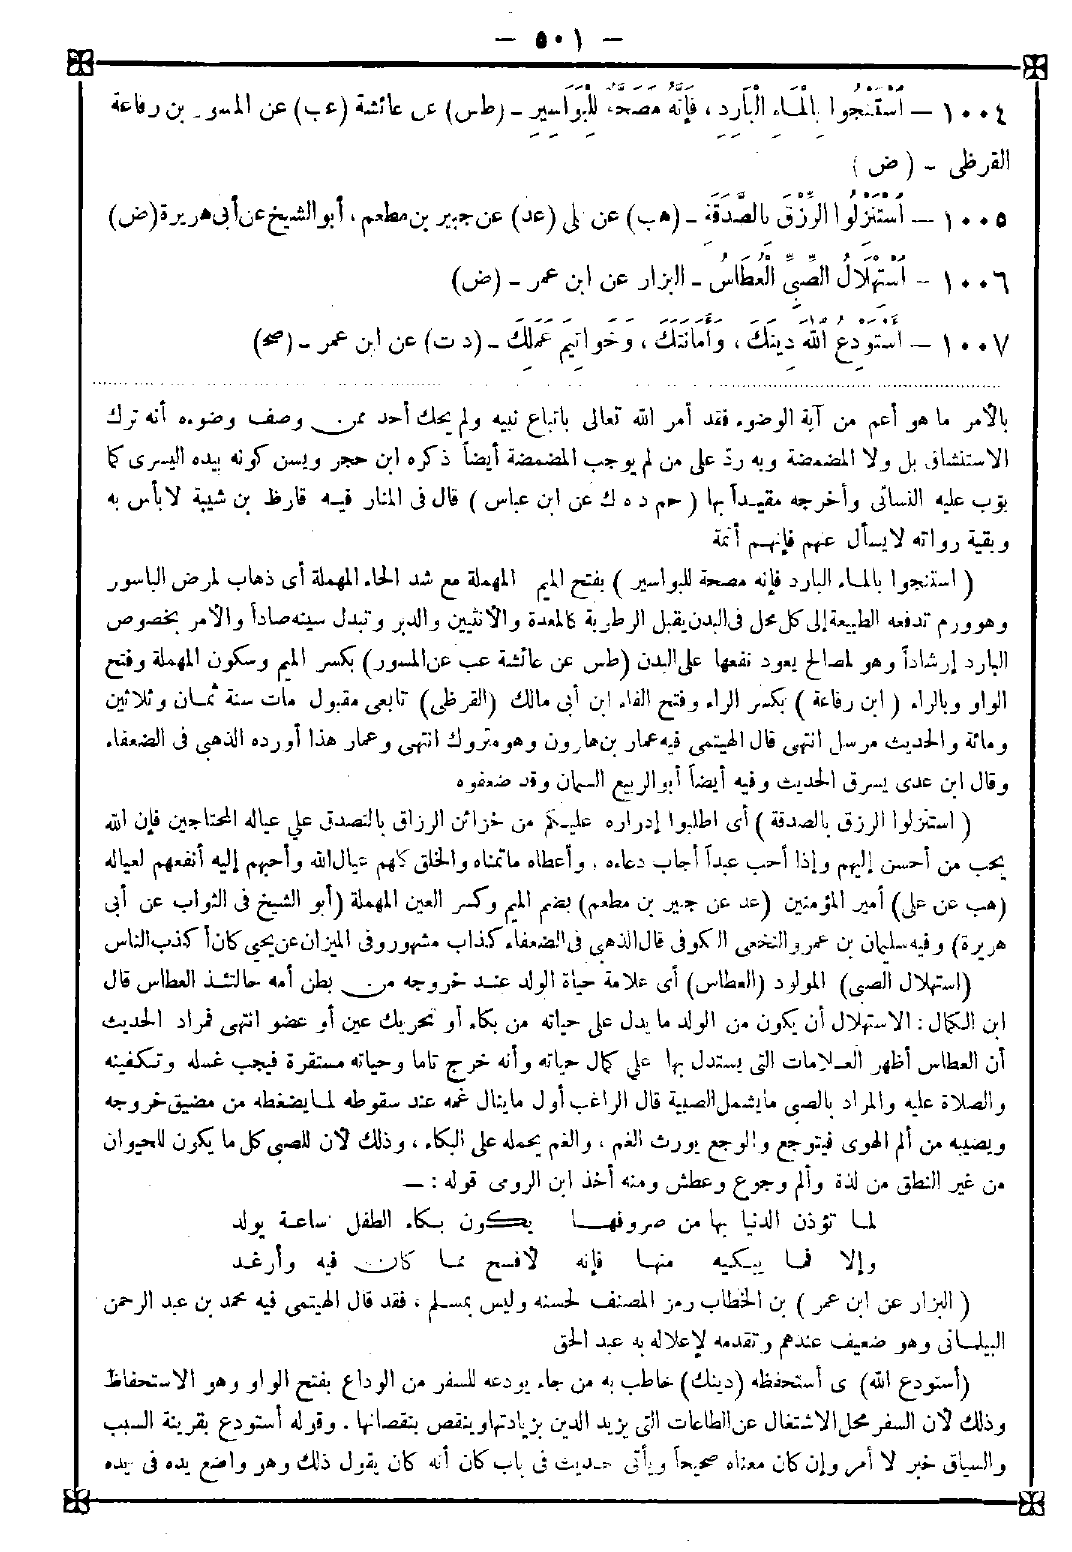 — ٥٠١ —
١٠٠٤ — اسْتَنْجُوا بِالْمَاءِ الْبَارِدِ، فَإِنَّهُ مَصَحَّةٌ لِلْبَوَاسِيرِ - (طس) عن عائشة (عب) عن المسور بن رفاعة
القرظى - (ض)
١٠٠٥ — اسْتَنْزِلُوا الرِّزْقَ بِالصَّدَقَةِ - (هب) عن على (عد) عن جبير بن مطعم، أبو الشيخ عن أبى هريرة (ض)
١٠٠٦ — اسْتِهْلَالُ الصَّبِيِّ الْعُطَاسُ - البزار عن ابن عمر - (ض)
١٠٠٧ — أَسْتَوْدِعُ اللّٰهَ دِينَكَ، وَأَمَانَتَكَ، وَخَوَاتِيمَ عَمَلِكَ - (د ت) عن ابن عمر - (صح)
بالأمر ما هو أعم من آية الوضوء فقد أمر الله تعالى باتباع نبيه ولم يحك أحد ممن وصف وضوءه أنه ترك
الاستنشاق بل ولا المضمضة وبه ردّ على من لم يوجب المضمضة أيضاً ذكره ابن حجر ويسن كونه بيده اليسرى كما
بوّب عليه النسائى وأخرجه مقيداً بها (حم د ه ك عن ابن عباس) قال فى المنار فيه قارظ بن شيبة لا بأس به
وبقية رواته لايسأل عنهم فإنهم أئمة
(استنجوا بالماء البارد فإنه مصحة للبواسير) بفتح الميم المهملة مع شد الحاء المهملة أى ذهاب لمرض الباسور
وهو ورم تدفعه الطبيعة إلى كل محل فى البدن يقبل الرطوبة كالمعدة والأنثيين والدبر وتبدل سينه صاداً والأمر بخصوص
البارد إرشاداً وهو لمصالح يعود نفعها على البدن (طس عن عائشة عب عن المسور) بكسر الميم وسكون المهملة وفتح
الواو وبالراء (ابن رفاعة) بكسر الراء وفتح الفاء ابن أبى مالك (القرظى) تابعى مقبول مات سنة ثمان وثلاثين
ومائة والحديث مرسل انتهى قال الهيتمى فيه عمار بن هارون وهو متروك انتهى وعمار هذا أورده الذهبى فى الضعفاء
وقال ابن عدى يسرق الحديث وفيه أيضاً أبو الربيع السمان وقد ضعفوه
(استنزلوا الرزق بالصدقة) أى اطلبوا إدراره عليكم من خزائن الرزاق بالتصدق على عياله المحتاجين فإن الله
يحب من أحسن إليهم وإذا أحب عبداً أجاب دعاءه، وأعطاه ما تمناه والخلق كلهم عيال الله وأحبهم إليه أنفعهم لعياله
(هب عن على) أمير المؤمنين (عد عن جبير بن مطعم) بضم الميم وكسر العين المهملة (أبو الشيخ فى الثواب عن أبى
هريرة) وفيه سليمان بن عمرو النخعى الكوفى قال الذهبى فى الضعفاء كذاب مشهور وفى الميزان عن يحيى كان أكذب الناس
(استهلال الصبى) المولود (العطاس) أى علامة حياة الولد عند خروجه من بطن أمه حالتئذ العطاس قال
ابن الكمال: الاستهلال أن يكون من الولد ما يدل على حياته من بكاء أو تحريك عين أو عضو انتهى فمراد الحديث
أن العطاس أظهر العلامات التى يستدل بها على كمال حياته وأنه خرج تاما وحياته مستقرة فيجب غسله وتكفينه
والصلاة عليه والمراد بالصبى ما يشمل الصبية قال الراغب أول ما ينال غمه عند سقوطه لما يضغطه من مضيق خروجه
ويصيبه من ألم الهوى فيتوجع والوجع يورث الغم، والغم يحمله على البكاء، وذلك لأن للصبى كل ما يكون للحيوان
من غير النطق من لذة وألم وجوع وعطش ومنه أخذ ابن الروى قوله: —
لما تؤذن الدنيا بها من صروفها يكون بكاء الطفل ساعة يولد
وإلا فما يبكيه منها فإنه لأفسح مما كان فيه وأرغد
(البزار عن ابن عمر) بن الخطاب رمز المصنف لحسنه وليس بمسلم، فقد قال الهيتمى فيه محمد بن عبد الرحمن
البيلمانى وهو ضعيف عندهم وتقدمه لإعلاله به عبد الحق
(أستودع الله) ى أستحفظه (دينك) خاطب به من جاء يودعه للسفر من الوداع بفتح الواو وهو الاستحفاظ
وذلك لأن السفر محل الاشتغال عن الطاعات التى يزيد الدين بزيادتها وينقص بنقصانها. وقوله أستودع بقرينة السبب
والسياق خبر لا أمر وإن كان معناه صحيحاً ويأتى حديث فى باب كان أنه كان يقول ذلك وهو واضع يده فى يده